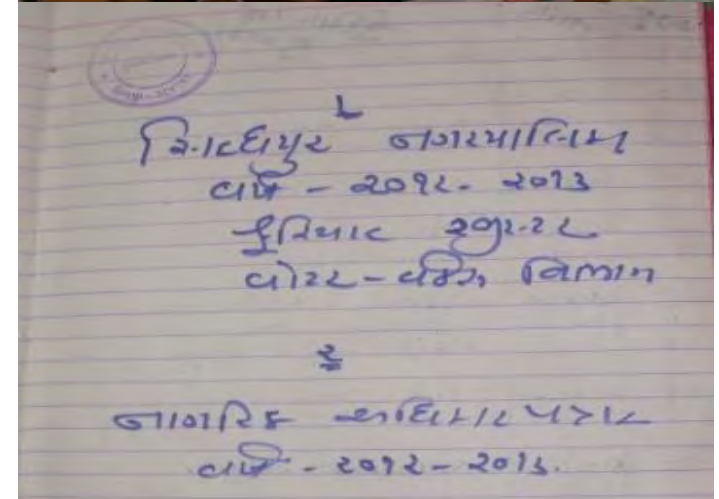 ૧
સિધ્ધપુર નગરપાલિકા
વર્ષ - ૨૦૧૨- ૨૦૧૩
ફરિયાદ રજીસ્ટર
વોટર-વર્કસ વિભાગ
૨
નાગરિક અધિકાર પત્રક
વર્ષ - ૨૦૧૨ - ૨૦૧૩.